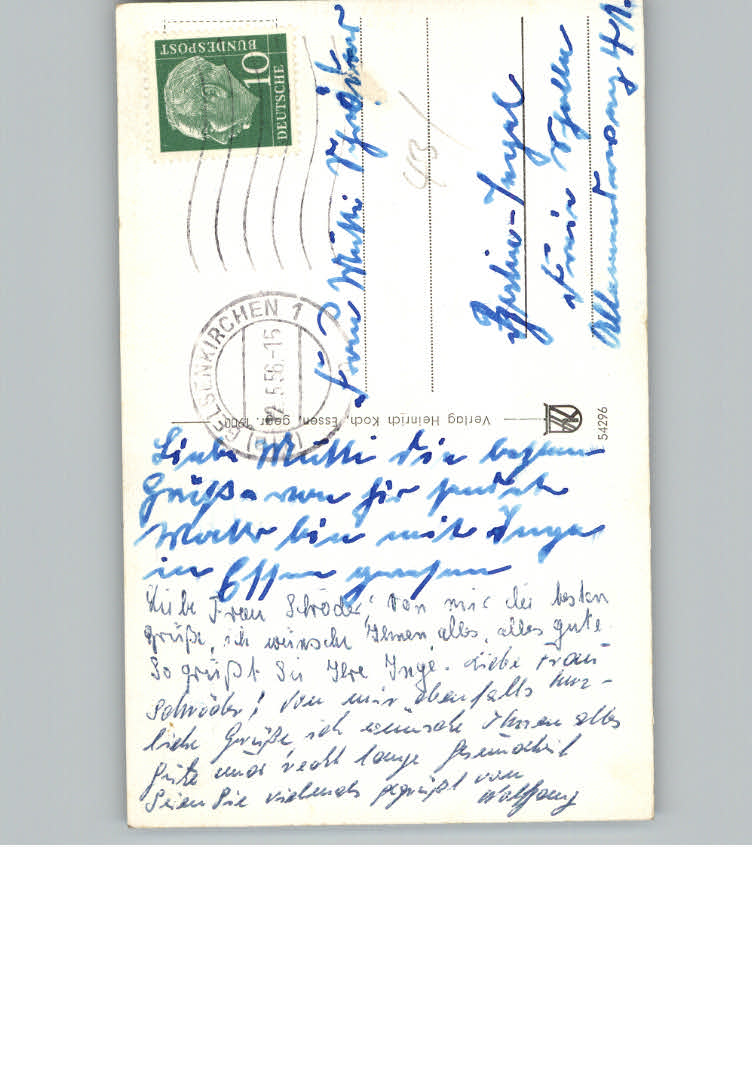 DEUTSCHE
BUNDESPOST
10
GELSENKIRCHEN 1
2.5.56-15
Frau Mutti Schröder
43/
Berlin-Tegel
54296
Verlag Heinrich Koch, Essen, gegr. 1900
Liebe Mutti die besten
Grüße von hir sendet
bin mit Inge
in Essen gewesen
Liebe Frau Schröder! Von mir die besten
Grüße, ich wünsche Ihnen alles, alles gute.
So grüßt Sie Ihre Inge. Liebe Frau
Schröder! Von mir ebenfalls herz-
liche Grüße, ich wünsche Ihnen alles
Gute und recht lange Gesundheit
Seien Sie vielmals gegrüßt von
Wolfgang